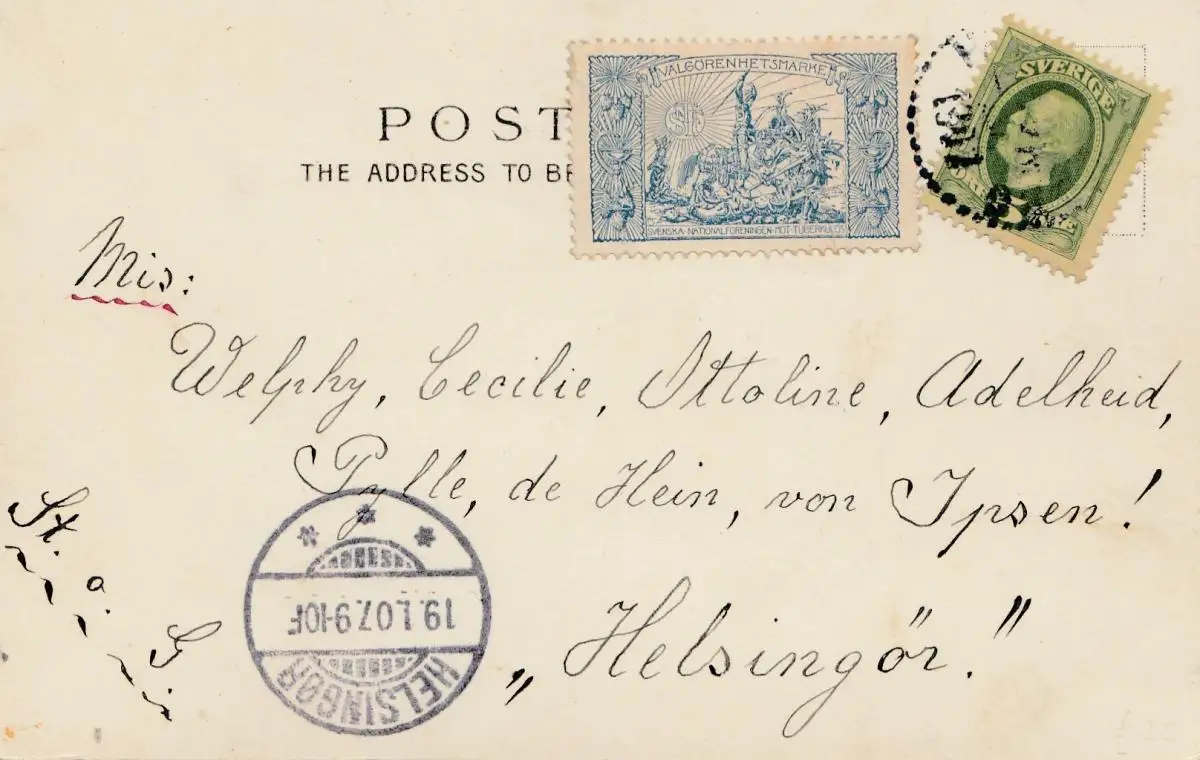 POST
THE ADDRESS TO BE
VÄLGÖRENHETSMÄRKE
SVENSKA·NATIONALFÖRENINGEN·MOT·TUBERKULOS
SVERIGE
5
Mis:
Welphy, Cecilie, Ottoline, Adelheid,
Pylle, de Hein, von Ipsen!
„Helsingör."
St. a. S.
19.1.07.9-10F
HELSINGØR